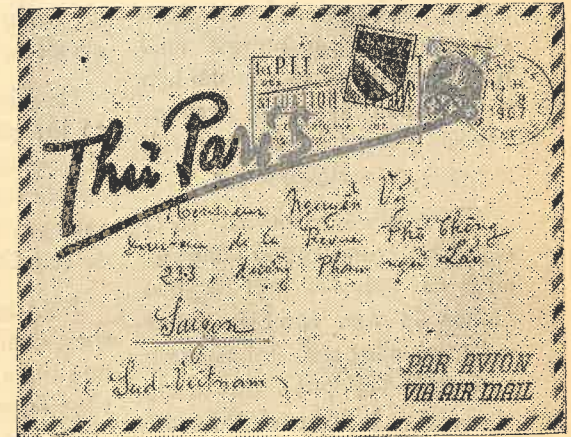 P.T.T
1967
Thư Paris
Monsieur Nguyễn Vỹ
Directeur de la Revue Phổ Thông
233, đường Phạm ngũ Lão
Saigon
(Sud-Vietnam)
PAR AVION
VIA AIR MAIL